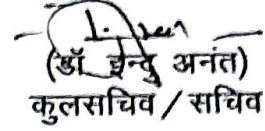 (डॉ इन्दु अनंत)
कुलसचिव / सचिव